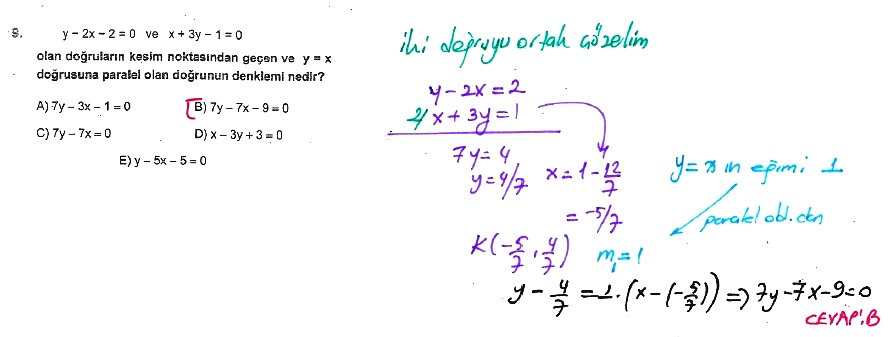 9. y – 2x – 2 = 0 ve x + 3y – 1 = 0
olan doğruların kesim noktasından geçen ve y = x
doğrusuna paralel olan doğrunun denklemi nedir?
A) 7y – 3x – 1 = 0 B) 7y – 7x – 9 = 0
C) 7y – 7x = 0 D) x – 3y + 3 = 0
E) y – 5x – 5 = 0
iki doğruyu ortak çözelim
y – 2x = 2
2/ x + 3y = 1
7y = 4
y = 4/7 x = 1 – 12/7
= –5/7
K(–5/7, 4/7)
y = x in eğimi 1
paralel old. dan
m₁ = 1
y – 4/7 = 1.(x – (–5/7)) ⇒ 7y – 7x – 9 = 0
CEVAP: B